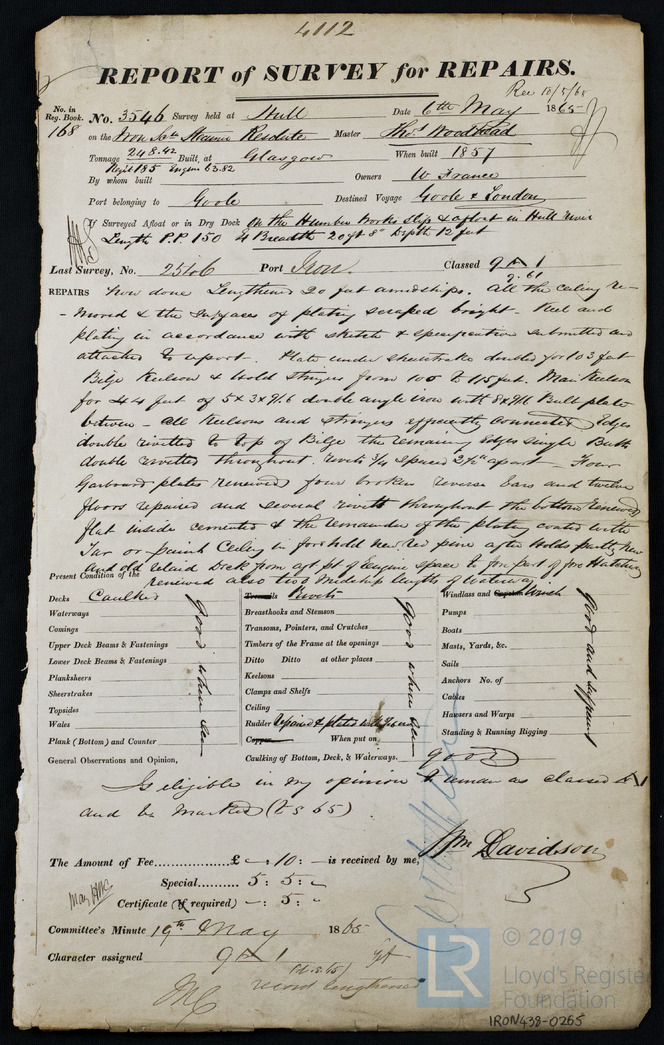 4112
REPORT of SURVEY for REPAIRS.
Rec 10/5/65
No. in Reg. Book. No. 3546 Survey held at Hull Date 6th May 1865
168 on the Iron Steamer Master Thos Woodhead
Tonnage 248.42 Built at Glasgow When built 1857
Regt 185 Engine 63.82
By whom built Owners W France
Port belonging to Goole Destined Voyage Goole & London
If Surveyed Afloat or in Dry Dock On the Humber Slip & afloat in Hull
Length P.P 150 Breadth 20 ft 8" Depth 12 feet
Last Survey, No. 2546 Port Iron. Classed 9 A 1
2.61
REPAIRS Now done Lengthened 20 feet amidships. All the ceiling re-
-moved & the surface of plating scraped bright - Keel and
plating in accordance with sketch & specification submitted and
attached to report. Plate under sheerstrake doubled for 103 feet
Bilge Keelson & hold stringer from 100 to 115 feet. Main Keelson
for 44 feet of 5 x 3 x 7/16 double angle iron with Bulb plate
between - all Keelsons and stringers efficiently connected Edges
double rivetted to top of Bilge the remaining edges single Butts
double rivetted throughout. rivets 3/4 spaced apart - Four
Garboard plates renewed four broken reverse bars and twelve
floors repaired and several rivets throughout the bottom renewed
flat inside cemented & the remainder of the plating coated with
Tar or paint Ceiling in fore hold new red pine after holds partly new
and old relaid Deck from aft pt of Engine space to fore part of fore Hatchway
renewed also two midship length of waterway
Present Condition of the
Decks Caulked
Waterways
Comings
Upper Deck Beams & Fastenings
Lower Deck Beams & Fastenings
Planksheers
Sheerstrakes
Topsides
Wales
Plank (Bottom) and Counter
good where seen
Treenails Rivets
Breasthooks and Stemson
Transoms, Pointers, and Crutches
Timbers of the Frame at the openings
Ditto Ditto at other places
Keelsons
Clamps and Shelfs
Ceiling
Rudder repaired & plates
Copper When put on
Caulking of Bottom, Deck, & Waterways. good
good where seen
Windlass and Capstan Winch
Pumps
Boats
Masts, Yards, &c.
Sails
Anchors No. of
Cables
Hawsers and Warps
Standing & Running Rigging
good and sufficient
General Observations and Opinion,
Is eligible in my opinion to remain as classed A1
and be marked (T S 65)
Wm Davidson
The Amount of Fee £ - : 10 : - is received by me,
Special 5 : 5 : -
Certificate (if required) - : 5 : -
Committee's Minute 19th May 1865
Character assigned 9 A 1
record lengthened
© 2019
LR
Lloyd's Register
Foundation
IRON438-0265